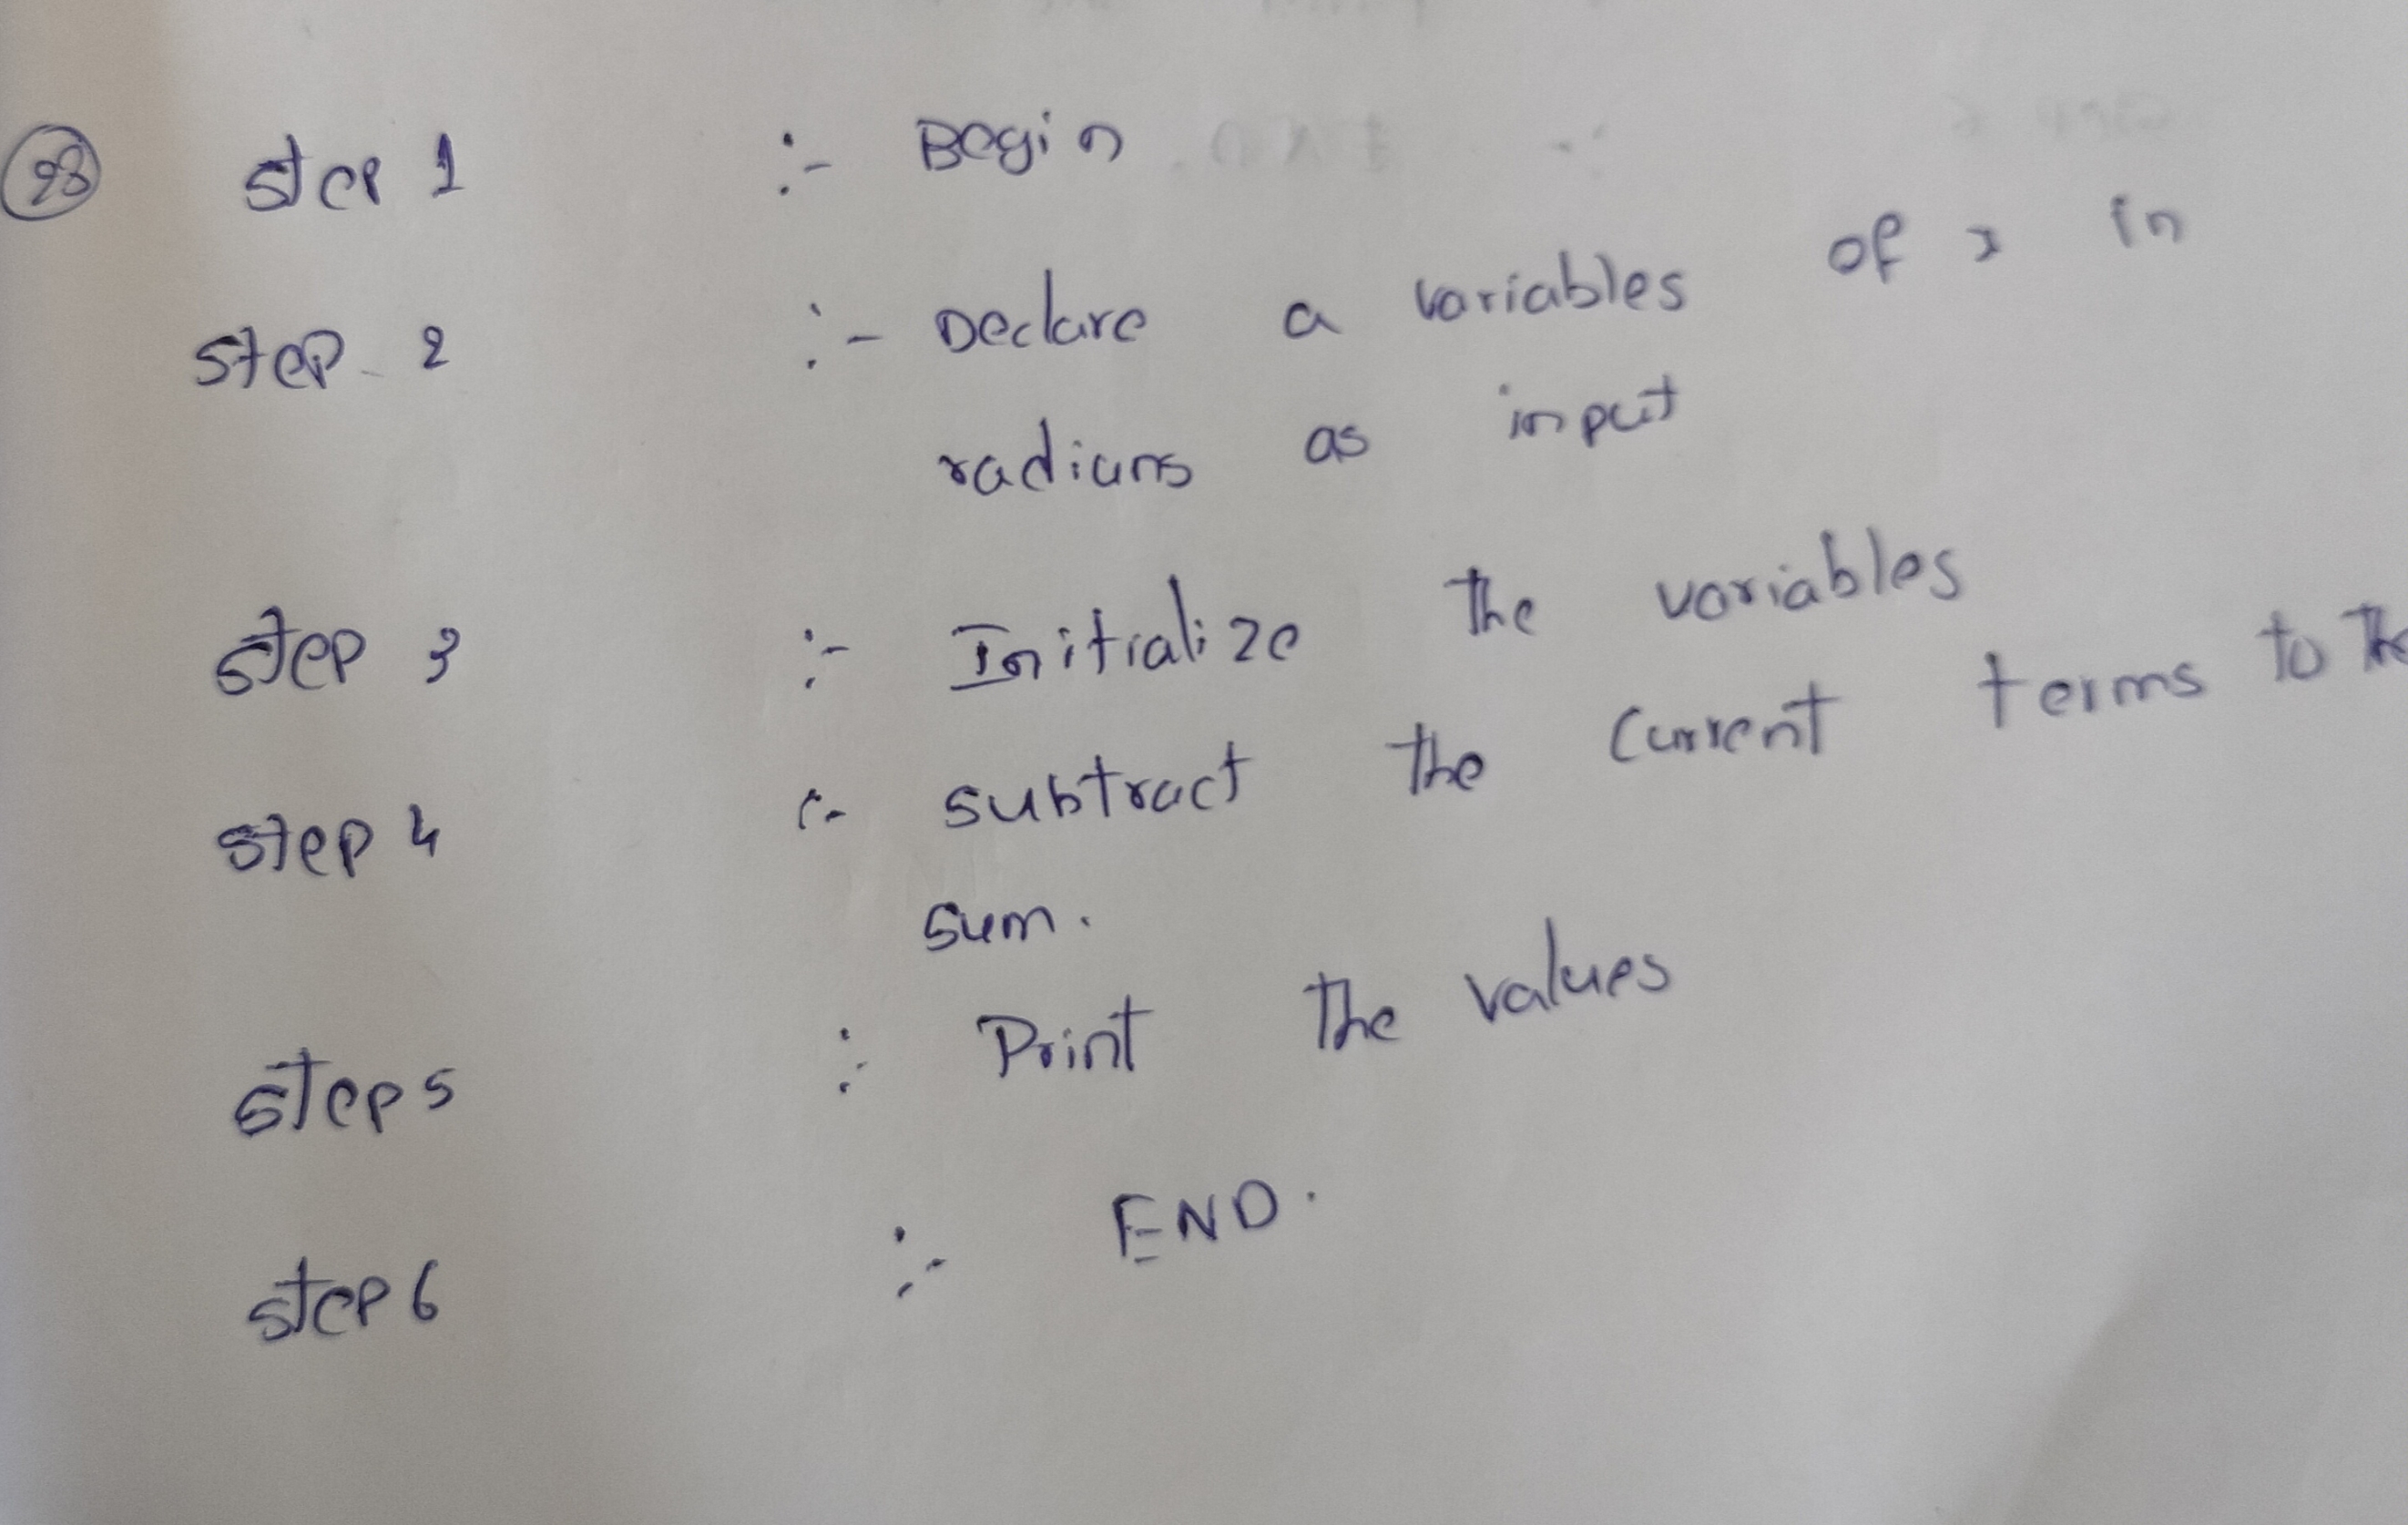 28 Step 1 :- Begin
Step 2 :- Declare a variables of x in
radians as input
Step 3 :- Initialize the variables
Step 4 :- subtract the current terms to the
sum.
Step 5 :- Print the values
Step 6 :- END.